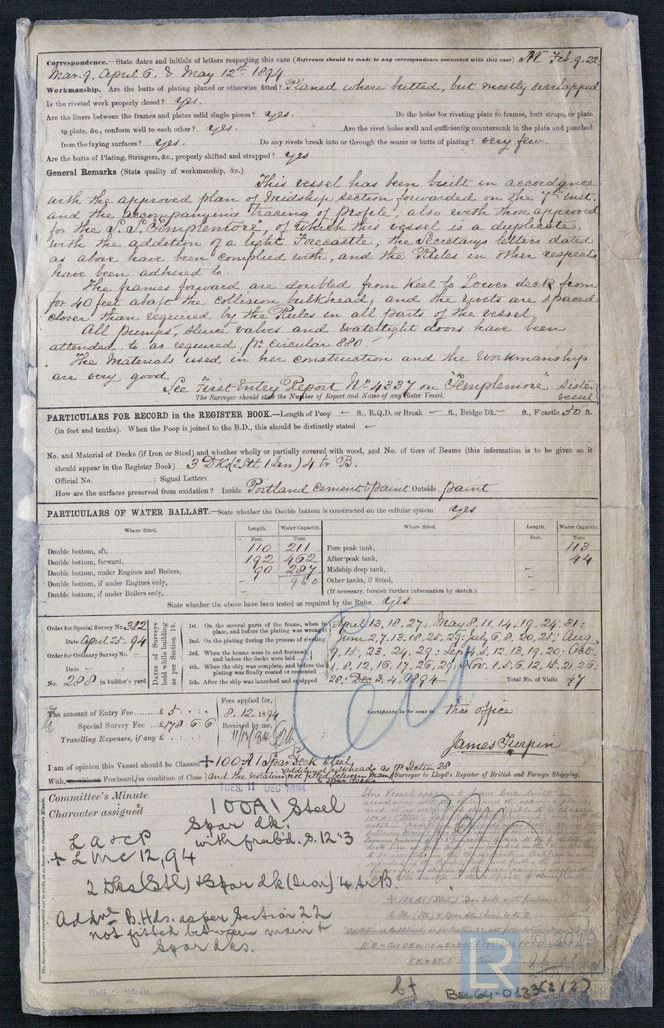 Correspondence.—State dates and initials of letters respecting this case (Reference should be made to any correspondence connected with this case) M Feb. 9. 22,
Mar. 9, April 6. & May 12th 1894
Workmanship. Are the butts of plating planed or otherwise fitted? Planed where butted, but mostly overlapped
Is the riveted work properly closed? yes.
Are the liners between the frames and plates solid single pieces? yes. Do the holes for riveting plate to frames, butt straps, or plate
to plate, &c., conform well to each other? yes. Are the rivet holes well and sufficiently countersunk in the plate and punched
from the faying surfaces? yes. Do any rivets break into or through the seams or butts of plating? very few.
Are the butts of Plating, Stringers, &c., properly shifted and strapped? yes
General Remarks (State quality of workmanship, &c.)
This vessel has been built in accordance
with the approved plan of Midship section forwarded on the 7th inst.
and the accompanying tracing of profile, also with those approved
for the S.S. "Templemore", of which this vessel is a duplicate,
with the addition of a light Forecastle, the Secretarys letters dated
as above have been complied with, and the Rules in other respects
have been adhered to.
The frames forward are doubled from Keel to Lower deck from
for 40 feet abaft the collision bulkhead, and the rivets are spaced
closer than required by the Rules in all parts of the vessel.
All pumps, sluice valves and watertight doors have been
attended to as required pr. Circular 880.
The Materials used in her construction and the workmanship
are very good
See First Entry Report No 4337 on "Templemore" sister vessel
The Surveyor should state the Number of Report and Name of any Sister Vessel.
PARTICULARS FOR RECORD in the REGISTER BOOK.—Length of Poop – ft., R.Q.D. or Break – ft., Bridge Dk. – ft., F'castle 50 ft.
(in feet and tenths). When the Poop is joined to the B.D., this should be distinctly stated –
No. and Material of Decks (if Iron or Steel) and whether wholly or partially covered with wood, and No. of tiers of Beams (this information is to be given as it
should appear in the Register Book) 3 Dks (2 Stl 1 Irn) 4 tr B.
Official No. ; Signal Letters
How are the surfaces preserved from oxidation? Inside Portland cement & paint Outside paint
PARTICULARS OF WATER BALLAST.—State whether the Double bottom is constructed on the cellular system yes
Where fitted. Length. Water Capacity. Where fitted. Length. Water Capacity.
Feet. Tons. Feet. Tons.
Double bottom, aft, 110 211 Fore peak tank, 113
Double bottom, forward, 192 462 After peak tank, 44
Double bottom, under Engines and Boilers, 90 287 Midship deep tank, –
Double bottom, if under Engines only, 960 Other tanks, if fitted, –
Double bottom, if under Boilers only, (If necessary, furnish further information by sketch.)
State whether the above have been tested as required by the Rules yes
Order for Special Survey No. 382
Date April 25. 94
Order for Ordinary Survey No. –
Date –
No. 288 in builder's yard.
Dates of Surveys held while building as per Section 18.
1st. On the several parts of the frame, when in place, and before the plating was wrought
2nd. On the plating during the process of riveting
3rd. When the beams were in and fastened, and before the decks were laid
4th. When the ship was complete, and before the plating was finally coated or cemented
5th. After the ship was launched and equipped
April 13, 18. 27; May 8. 11. 14. 19. 24. 31:
June 2. 7. 13. 18. 25. 29: July 6. 8. 20. 25: Aug
9. 15. 23. 24. 29: Sep 4. 5. 12. 13. 19. 20: Oct
1. 8. 12. 16. 17. 26. 29: Nov. 1. 5. 6. 12. 15. 21. 26.
20: Dec 3. 4. 1894 Total No. of Visits 47
The amount of Entry Fee £5
Special Survey Fee £178 6 6
Travelling Expenses, if any £
Fees applied for, 8. 12. 1894
Received by me,
Certificate to be sent to this office
James Turpin
I am of opinion this vessel should be Classed ✠100 A1 Spar Deck Steel
With Freeboard, as condition of Class) and the notation additional bulkheads as pr Section 28 not fitted between Main & spar decks
Surveyor to Lloyd's Register of British and Foreign Shipping.
TUES. 11 DEC 1894
Committee's Minute
Character assigned
100A1 Steel
Spar dk.
with frabd. S. 12" 3
LA & CP
+ LMC 12,94
2 Dks (Stl) & Spar dk (Iron) 4 tr B.
Addnl B.Hds. as per Section 22
not fitted between main &
Spar dks.
LR